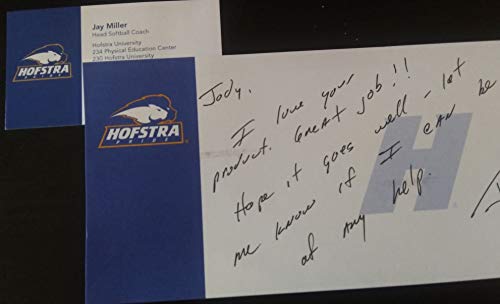 Jay Miller
Head Softball Coach
Hofstra University
234 Physical Education Center
230 Hofstra University
HOFSTRA
PRIDE
HOFSTRA
PRIDE
Jody,
I love your
product. Great job!!
Hope it goes well - let
me know if I can be
of any help.
H